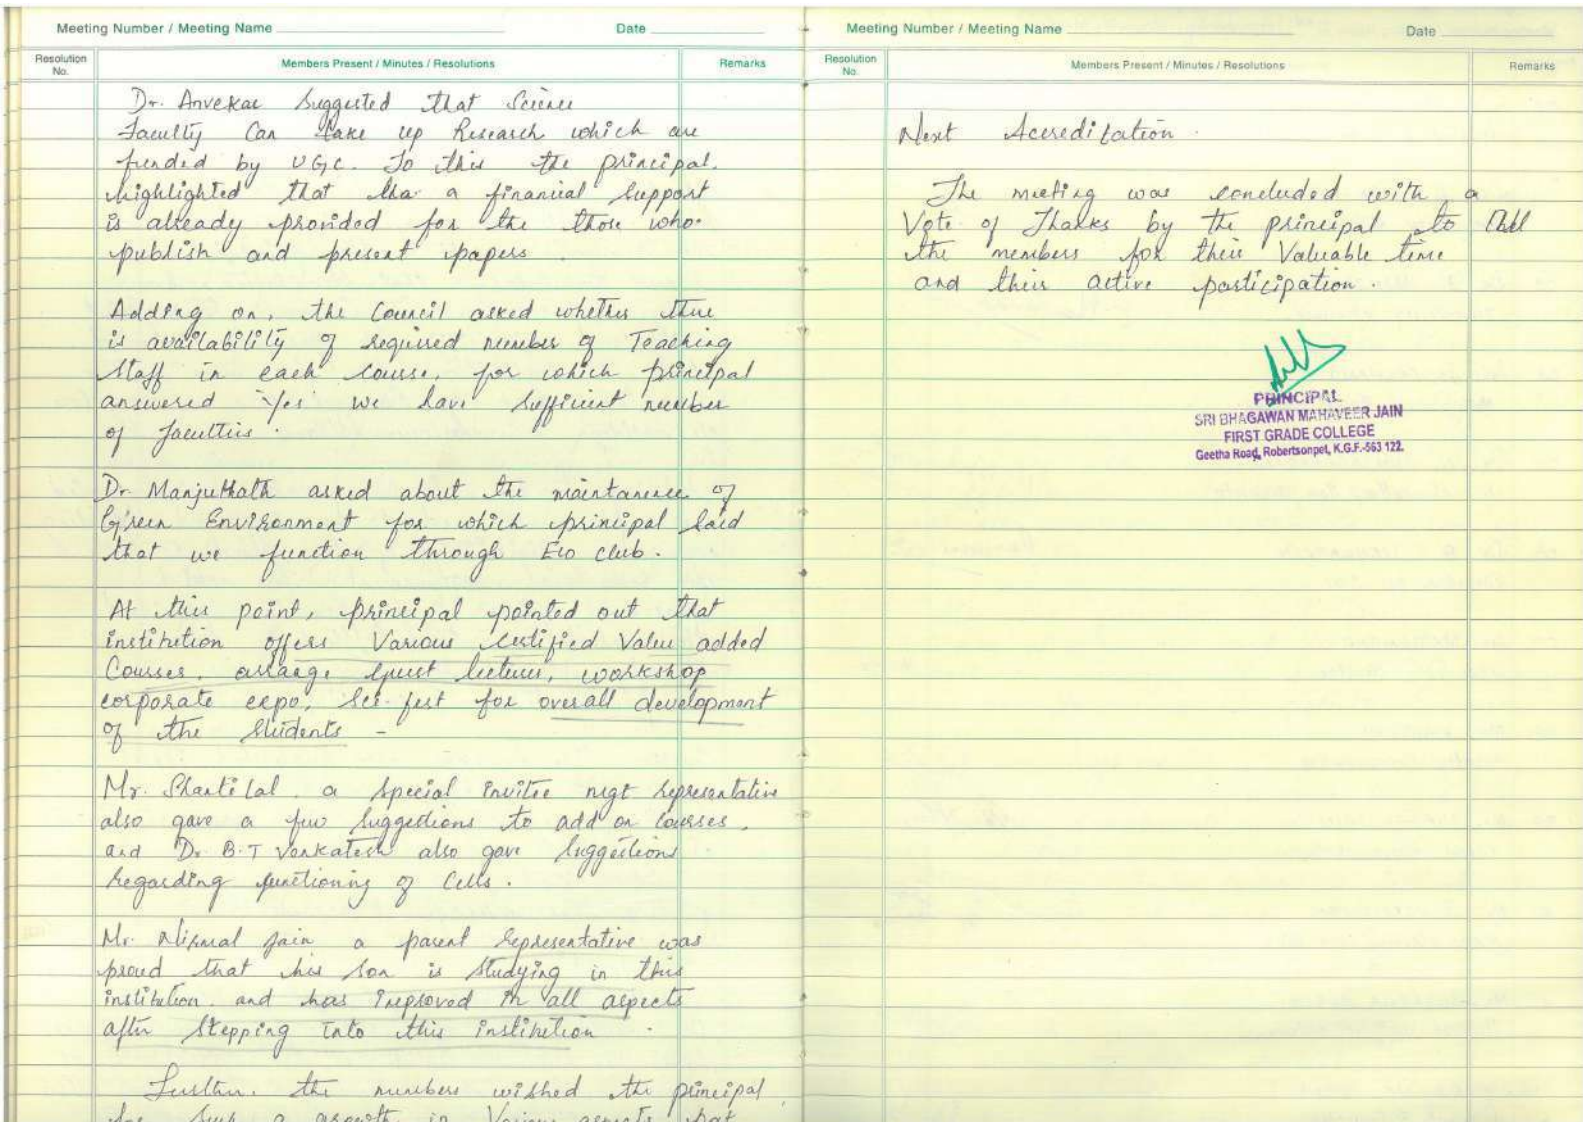 Meeting Number / Meeting Name Date
Resolution No. Members Present / Minutes / Resolutions Remarks
Dr. Anvekar Suggested that Science
Faculty Can take up Research which are
funded by UGC. To this the principal.
highlighted that a financial Support
is already provided for the those who
publish and present papers
Adding on, the Council asked whether there
is availability of required number of Teaching
Staff in each Course, for which principal
answered Yes we have Sufficient number
of faculties.
Dr. Manjunath asked about the maintanence of
Green Environment for which principal Said
that we function through Eco club.
At this point, principal pointed out that
institution offers Various Certified Value added
Courses, arrange guest lectures, workshop
corporate expo, Sci. fest for overall development
of the Students -
Mr. Shantilal a Special invitee mgt representative
also gave a few Suggestions to add on Courses,
and Dr. B.T Venkatesh also gave Suggestions
Regarding functioning of Cells.
Mr. Nirmal Jain a parent Representative was
proud that his Son is Studying in this
institution and has Improved in all aspects
after Stepping into this institution.
Further. the members wished the principal
growth in Various aspects
Meeting Number / Meeting Name Date
Resolution No. Members Present / Minutes / Resolutions Remarks
Next Accreditation.
The meeting was concluded with a
Vote of Thanks by the principal to
the members for their Valuable time
and their active participation.
PRINCIPAL
SRI BHAGAWAN MAHAVEER JAIN
FIRST GRADE COLLEGE
Geetha Road, Robertsonpet, K.G.F.-563 122.